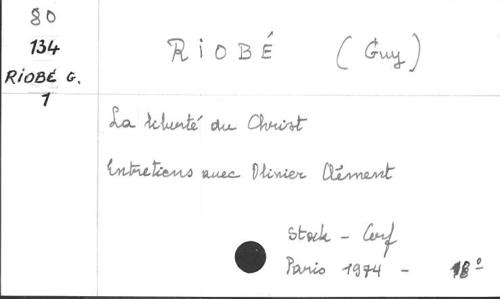 80
134
RIOBÉ G.
1
RIOBÉ (Guy)
La liberté du Christ
Entretiens avec Olivier Clément
Stock - Cerf
Paris 1974 - 18º